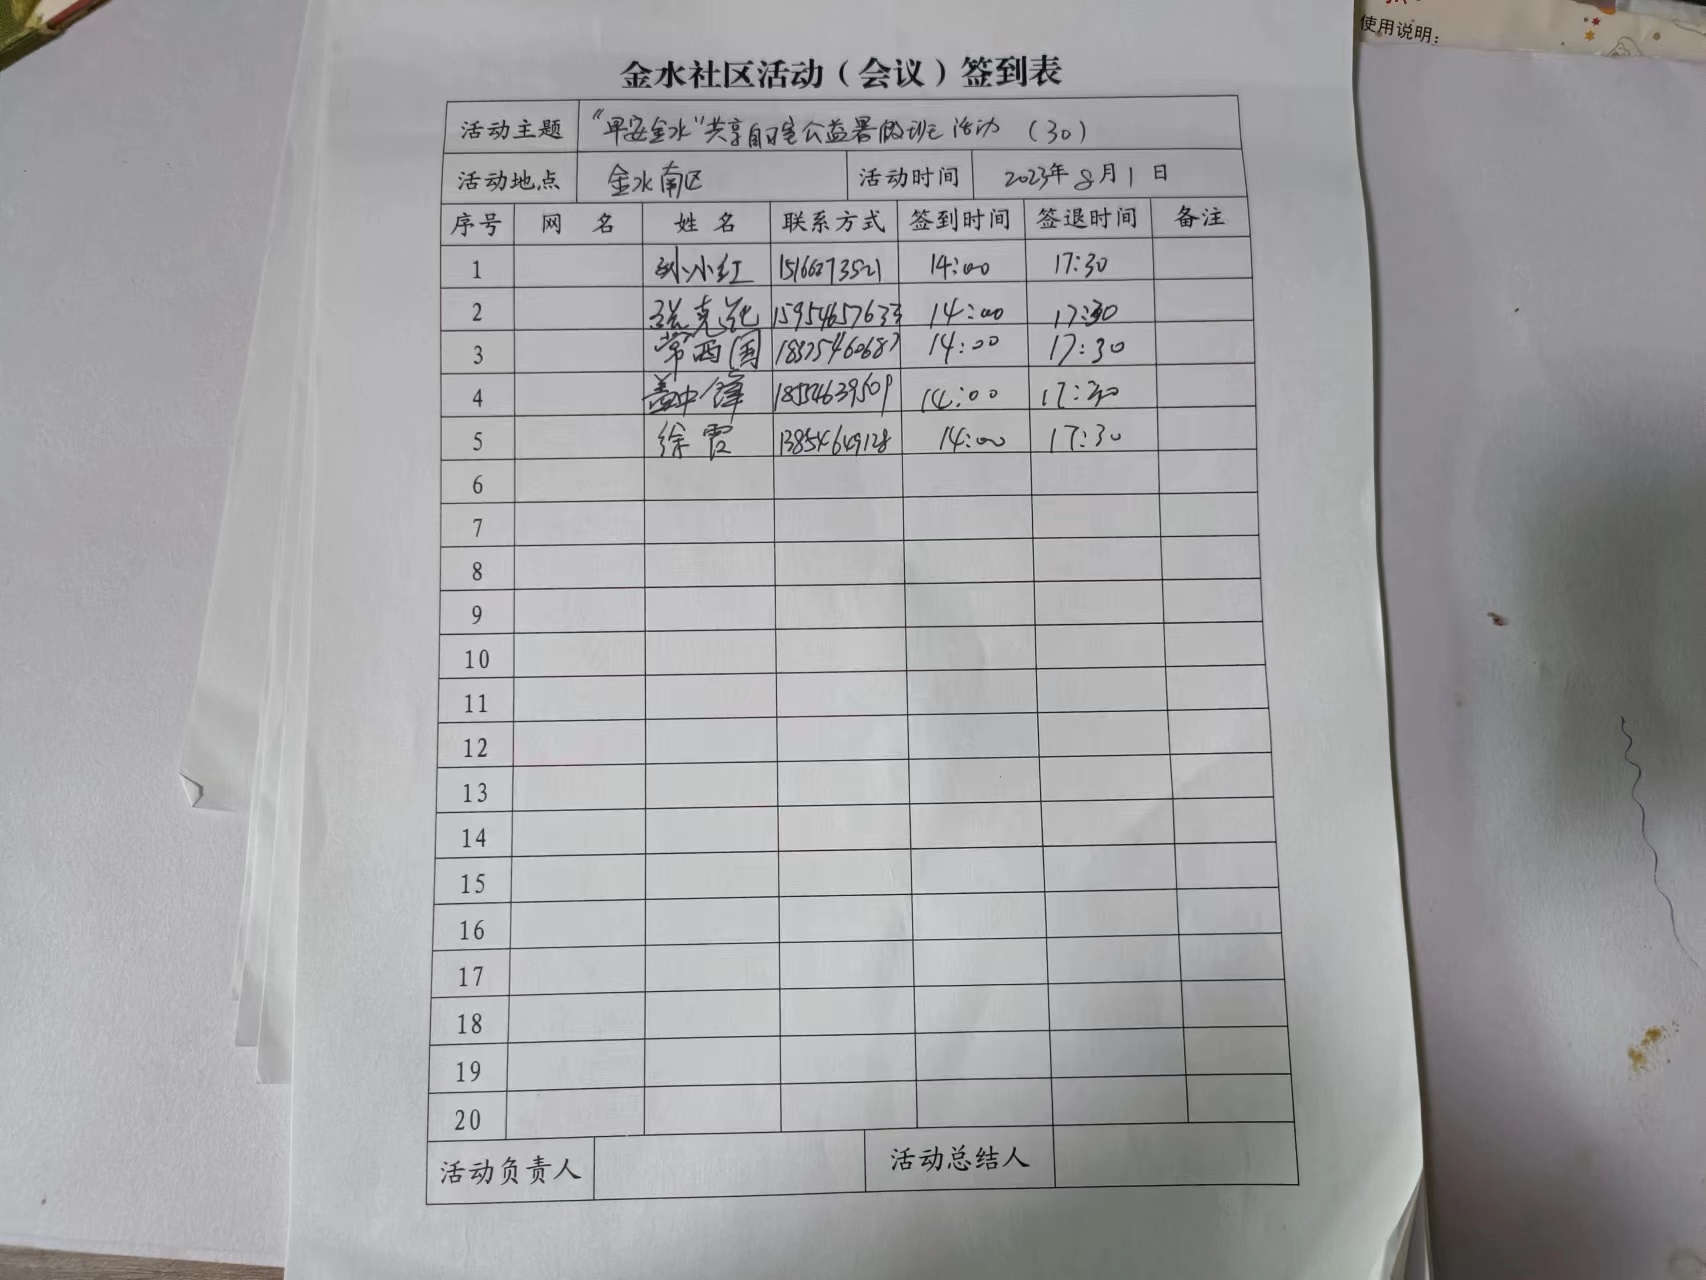 使用说明:
金水社区活动（会议）签到表
活动主题 “早安金水”共享自习室公益暑假班活动 （30）
活动地点 金水南区 活动时间 2023年8月1日
序号 网 名 姓 名 联系方式 签到时间 签退时间 备注
1 孙小红 15166273521 14:00 17:30
2 15954657633 14:00 17:30
3 常西国 14:00 17:30
4 盖中锋 18554639509 14:00 17:30
5 徐霞 14:00 17:30
6
7
8
9
10
11
12
13
14
15
16
17
18
19
20
活动负责人 活动总结人